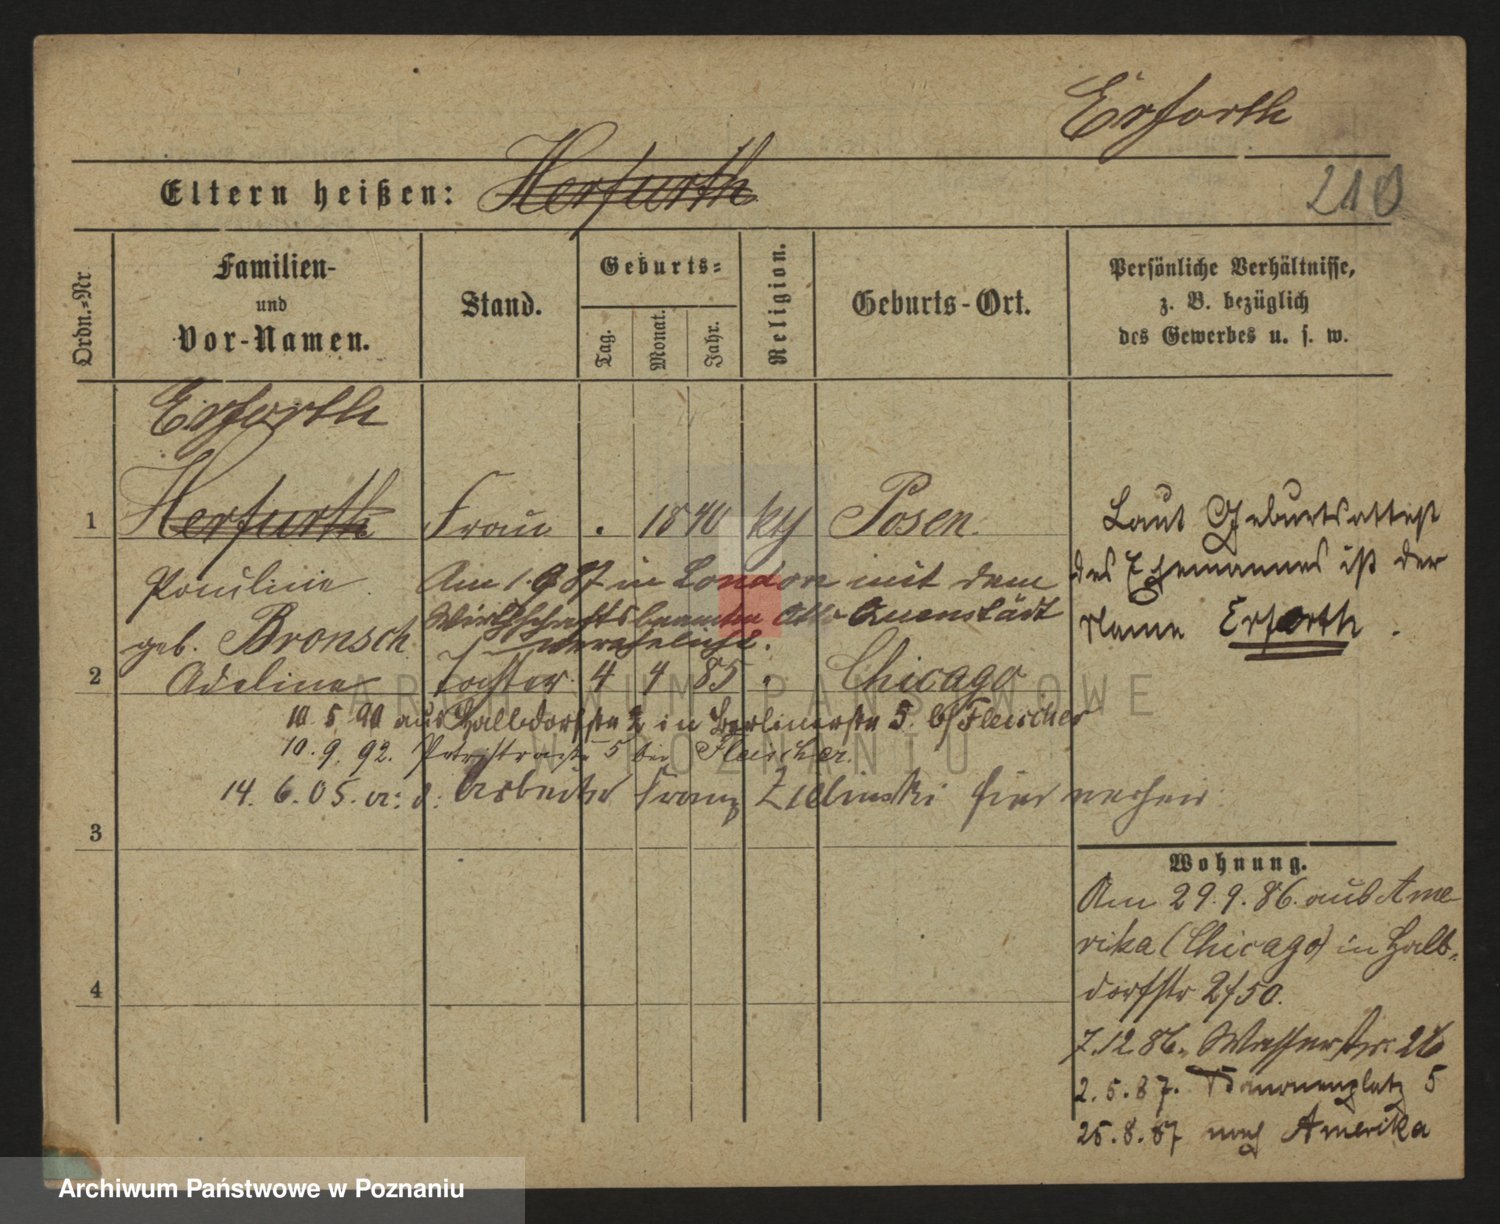 Erforth
Eltern heißen: Herfurth
210
Ordn.-Nr.
Familien-
und
Vor-Namen.
Stand.
Geburts-
Tag.
Monat.
Jahr.
Religion.
Geburts-Ort.
Persönliche Verhältnisse,
z. B. bezüglich
des Gewerbes u. s. w.
Erforth
1 Herfurth Frau . 1840 kg Posen.
Pauline
geb. Bronsch
Am 1.9 87 in London mit dem
Wirthschaftsbeamten Otto Quenstädt
verehelicht.
Laut Geburtsattest
des Ehemannes ist der
Name Erforth.
2 Adeline Tochter 4 4 85 " Chicago
10. 5. 90 aus Halbdorfstr 2 in Berlinerstr 5. b/ Fleischer
10. 9. 92. Petristraße 5 bei Fleischer.
14. 6. 05. a: d: Arbeiter Franz Zielinski hier verheir:
3
4
Wohnung.
Am 29. 9. 86. aus Ame-
rika (Chicago) in Halb-
dorfstr 2/50.
7. 12. 86. Wasserstr: 26
2. 5. 87. platz 5
25. 8. 87 nach Amerika
ARCHIWUM PAŃSTWOWE
W POZNANIU
Archiwum Państwowe w Poznaniu